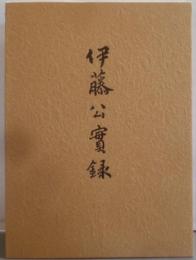 伊藤公實録